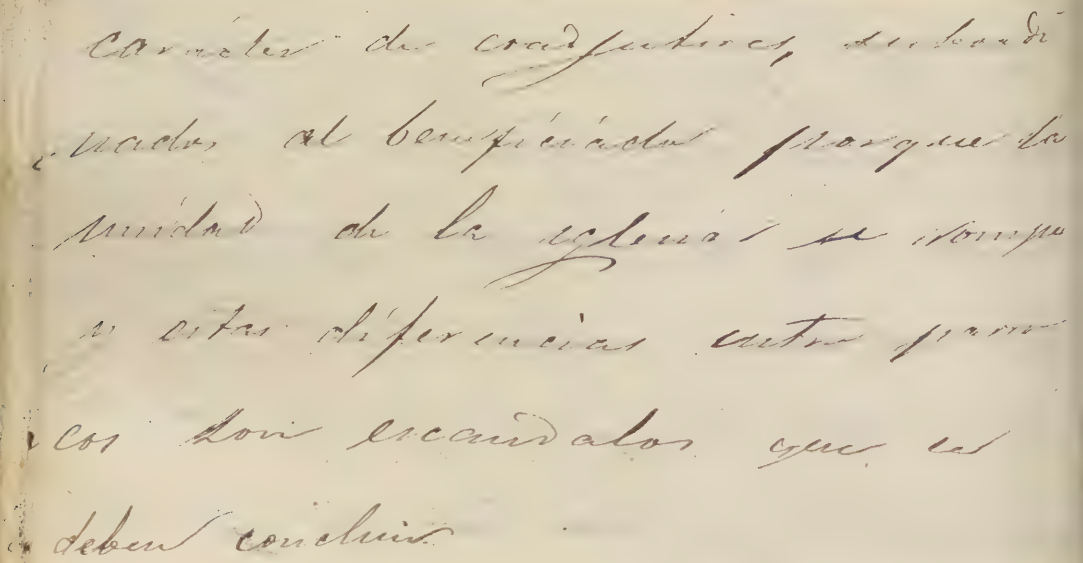 carácter de coadjutores, subordi
nados al beneficiado porque la
unidad de la yglesia se rompe
y estas diferencias entre parro
cos son escandalos que se
deben concluir